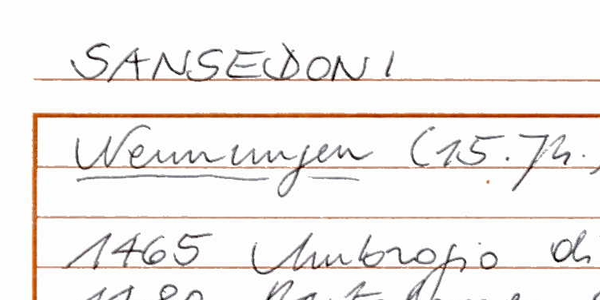 SANSEDONI
Nennungen (15. Jh.)
1465 Ambrogio di